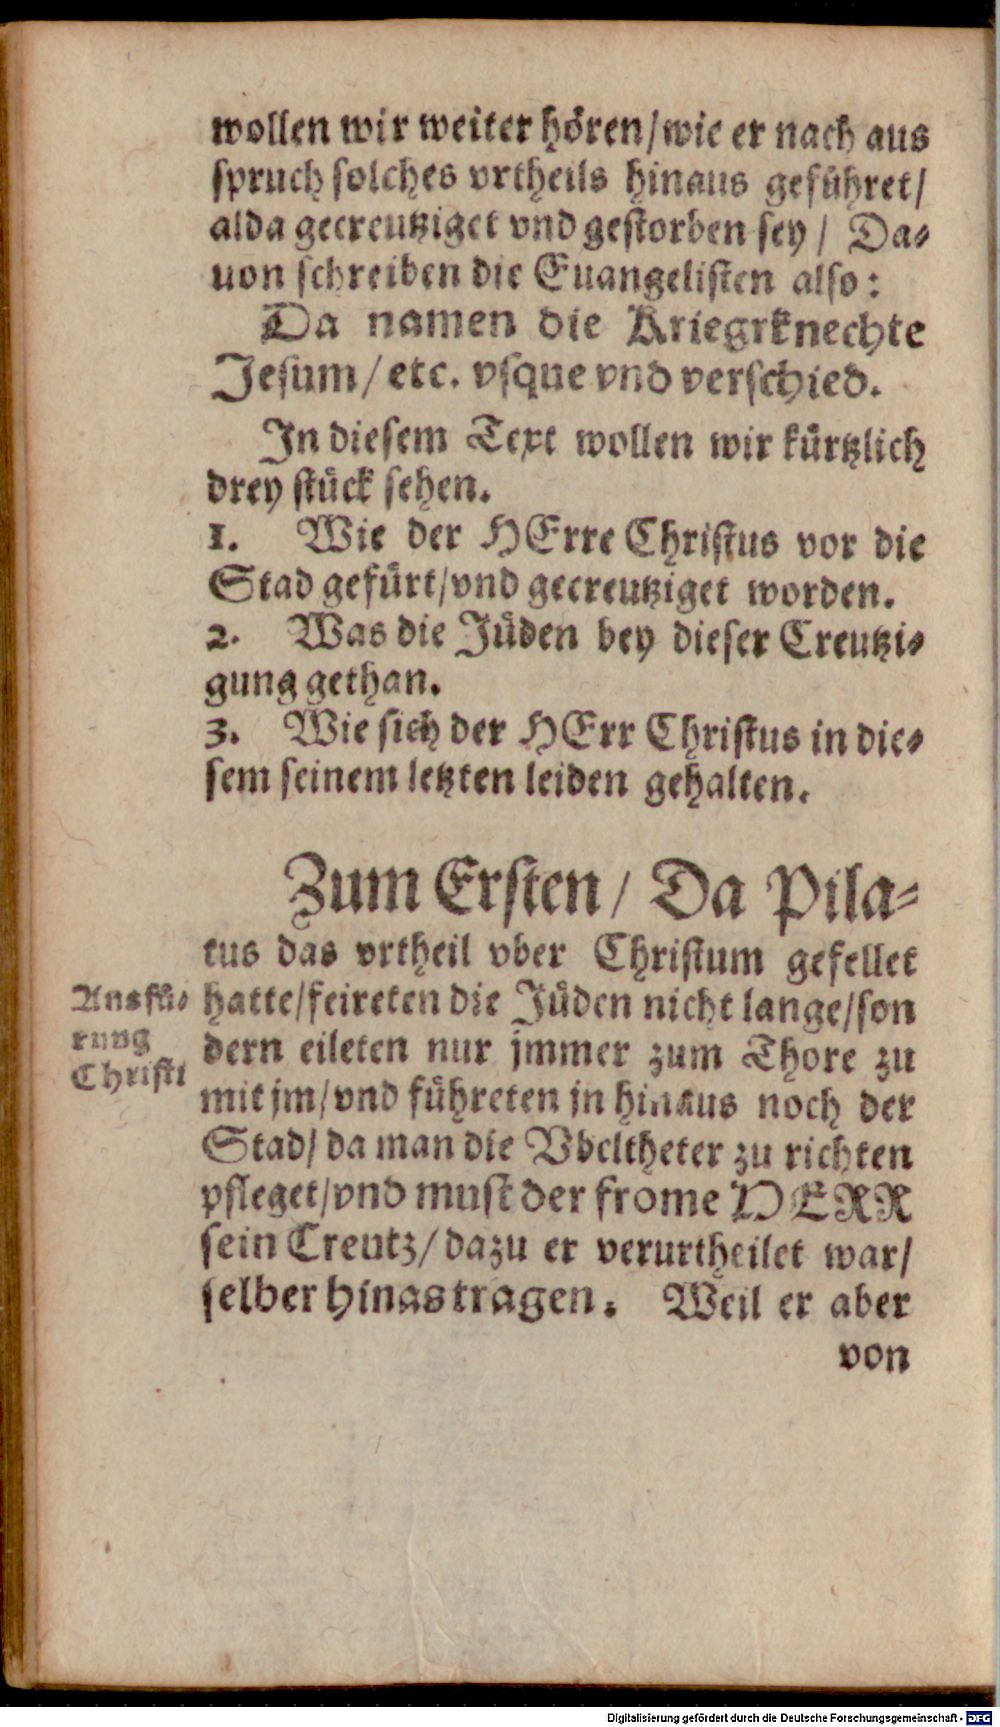 wollen wir weiter hören/wie er nach aus
spruch solches vrtheils hinaus geführet/
alda gecreutziget vnd gestorben sey/ Da-
uon schreiben die Euangelisten also:
Da namen die Kriegrknechte
Jesum/etc. vsque vnd verschied.
In diesem Text wollen wir kürtzlich
drey stück sehen.
1. Wie der HErre Christus vor die
Stad gefürt/vnd gecreutziget worden.
2. Was die Jüden bey dieser Creutzi-
gung gethan.
3. Wie sich der HErr Christus in die-
sem seinem letzten leiden gehalten.
Zum Ersten/ Da Pila-
tus das vrtheil vber Christum gefellet
hatte/feireten die Jüden nicht lange/son
dern eileten nur jmmer zum Thore zu
mit jm/vnd führeten jn hinaus noch der
Stad/da man die Vbeltheter zu richten
pfleget/vnd must der frome HERR
sein Creutz/dazu er verurtheilet war/
selber hinas tragen. Weil er aber
von
Ausfü-
rung
Christi
Digitalisierung gefördert durch die Deutsche Forschungsgemeinschaft - DFG